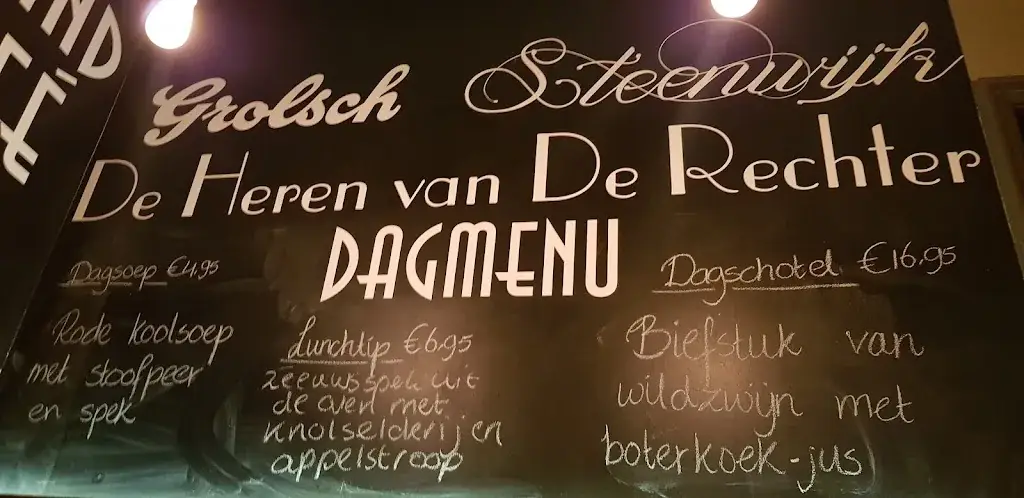 AND
FÉ
Grolsch Steenwijk
De Heren van De Rechter
DAGMENU
Dagsoep €4,95
Rode koolsoep
met stoofpeer
en spek
Lunchtip €6,95
zeeuws spek uit
de oven met
knolselderij en
appelstroop
Dagschotel €16,95
Biefstuk van
wildzwijn met
boterkoek-jus